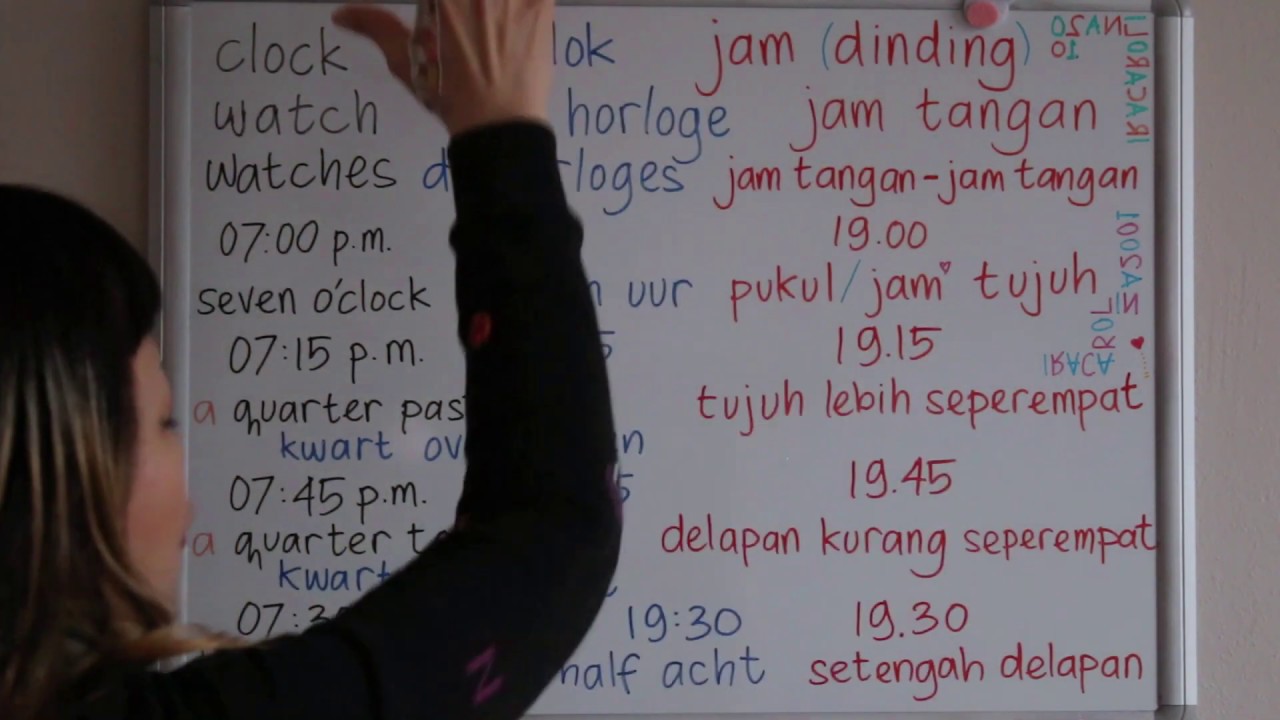 clock jam (dinding)
watch horloge jam tangan
watches jam tangan-jam tangan
07:00 p.m. 19.00
seven o'clock uur pukul/jam tujuh
07:15 p.m. 19.15
a quarter tujuh lebih seperempat
kwart
07:45 p.m. 19.45
a quarter delapan kurang seperempat
kwart
19:30 19.30
half acht setengah delapan